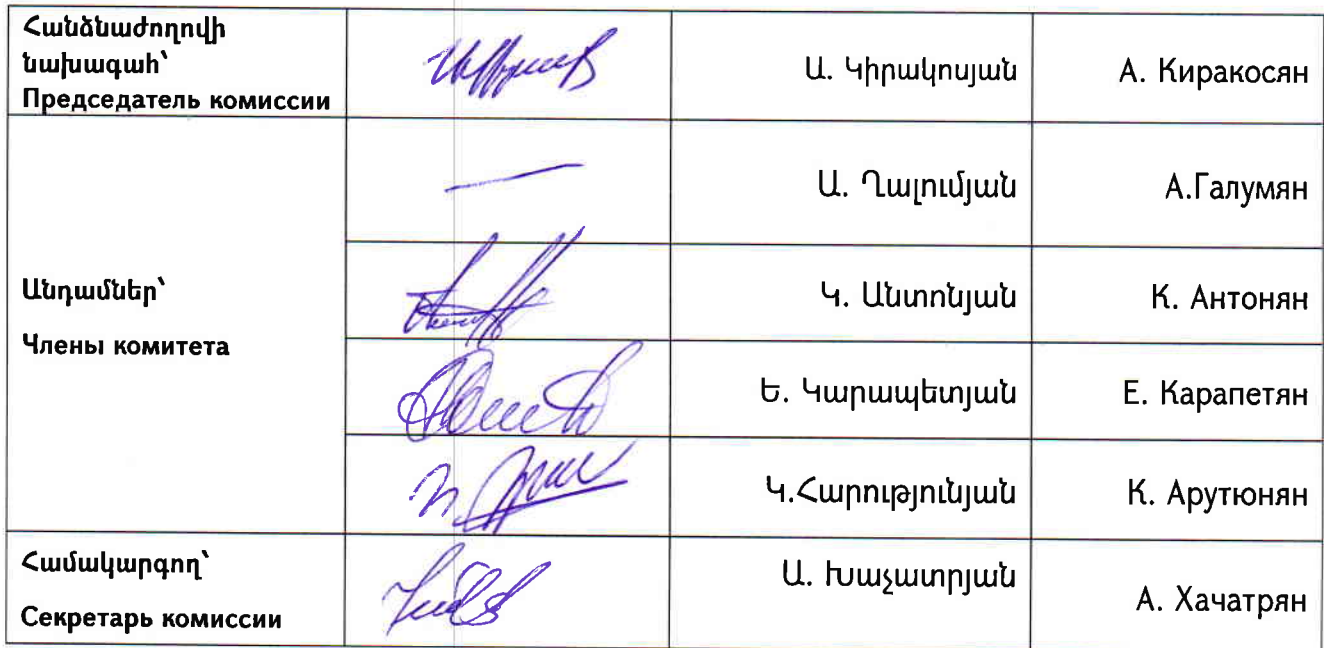 Հանձնաժողովի
նախագահ՝
Председатель комиссии
Ա. Կիրակոսյան
А. Киракосян
Անդամներ՝
Члены комитета
—
Ա. Ղալումյան
А.Галумян
Կ. Անտոնյան
К. Антонян
Ե. Կարապետյան
Е. Карапетян
Կ.Հարությունյան
К. Арутюнян
Համակարգող՝
Секретарь комиссии
Ա. Խաչատրյան
А. Хачатрян